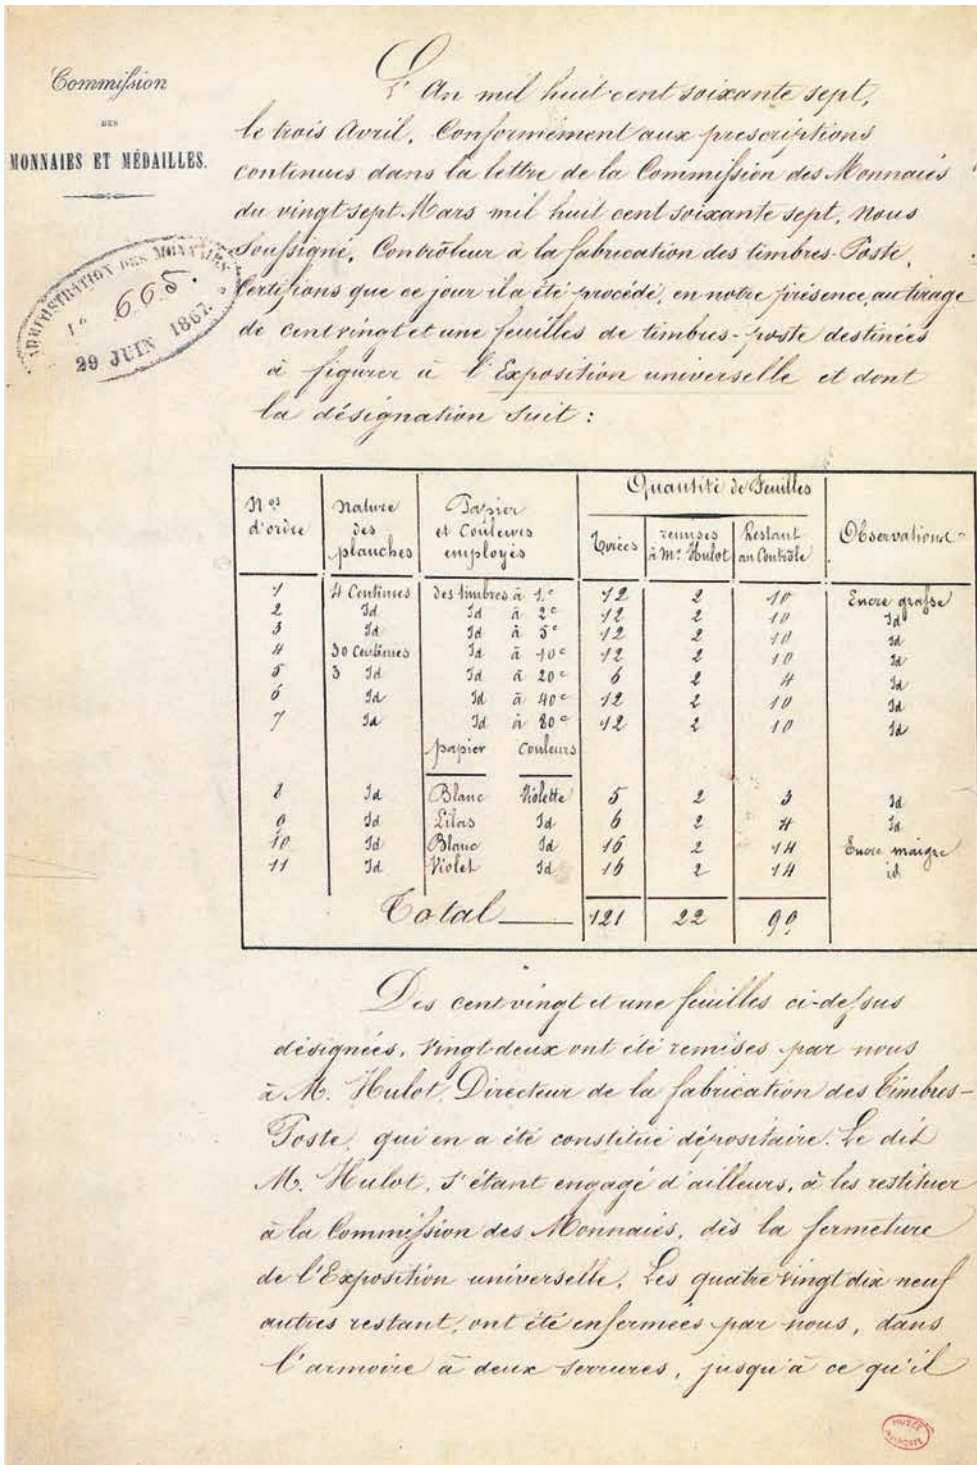 Commission
DES
MONNAIES ET MÉDAILLES.
ADMINISTRATION DES MONNAIES
1º 665.
29 JUIN 1867.
L'An mil huit cent soixante sept,
le trois Avril, Conformément aux prescriptions
contenues dans la lettre de la Commission des Monnaies
du vingt sept Mars mil huit cent soixante sept, Nous
Soussigné, Contrôleur à la fabrication des timbres-Poste,
Certifions que ce jour il a été procédé, en notre présence, au tirage
de cent vingt et une feuilles de timbres-poste destinées
à figurer à l'Exposition universelle et dont
la désignation suit :
Nos d'ordre | Nature des planches | Papier et Couleurs employés | Quantité de Feuilles | Observations
Tirées | remises à Mr. Hulot | Restant au Contrôle
1 | 4 Centimes | des timbres à 1.c | 12 | 2 | 10 | Encre grasse
2 | Id | Id à 2c | 12 | 2 | 10 | Id
3 | Id | Id à 5c | 12 | 2 | 10 | Id
4 | 30 Centimes | Id à 10c | 12 | 2 | 10 | Id
5 | 3 Id | Id à 20c | 6 | 2 | 4 | Id
6 | Id | Id à 40c | 12 | 2 | 10 | Id
7 | Id | Id à 80c | 12 | 2 | 10 | Id
papier | Couleurs
8 | Id | Blanc | Violette | 5 | 2 | 3 | Id
9 | Id | Lilas | Id | 6 | 2 | 4 | Id
10 | Id | Blanc | Id | 16 | 2 | 14 | Encre maigre
11 | Id | Violet | Id | 16 | 2 | 14 | id
Total | 121 | 22 | 99
Des cent vingt et une feuilles ci-dessus
désignées, Vingt-deux ont été remises par nous
à M. Hulot, Directeur de la fabrication des Timbres-
Poste, qui en a été constitué dépositaire. Le dit
M. Hulot, s'étant engagé d'ailleurs, à les restituer
à la Commission des Monnaies, dès la fermeture
de l'Exposition universelle. Les quatre vingt dix neuf
autres restant, ont été enfermées par nous, dans
l'armoire à deux serrures, jusqu'à ce qu'il
MUSÉE